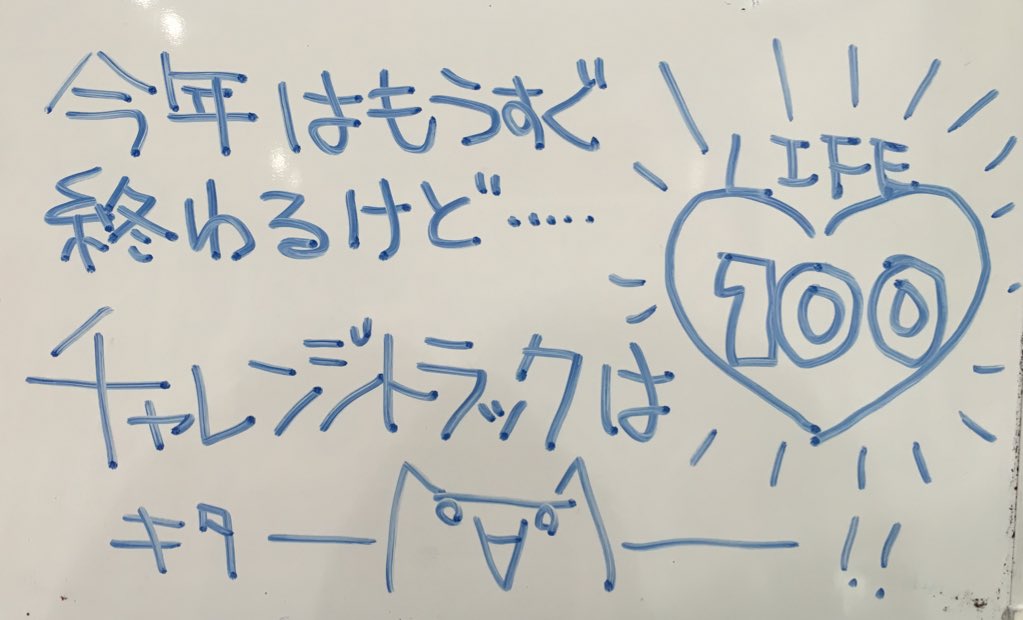 今年はもうすぐ
終わるけど……
チャレンジトラックは
キター(゜∀゜)ー!!
LIFE
100